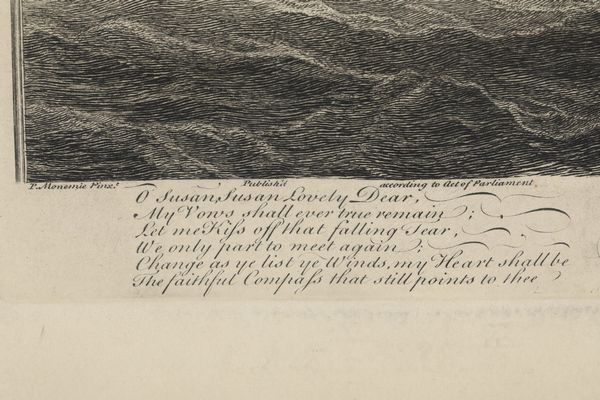 P. Monemie Pinx.t Publish'd according to Act of Parliament.
O Susan, Susan Lovely Dear,
My Vows shall ever true remain;
Let me Kiſs off that falling Tear,
We only part to meet again;
Change as ye list ye Winds, my Heart shall be
The faithful Compaſs that still points to thee